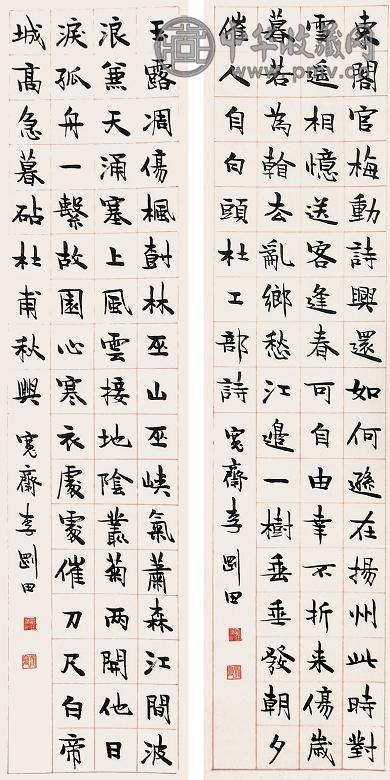 中华收藏网
東閣官梅動詩興還如何遜在揚州此時對
雪遥相憶送客逢春可自由幸不折来傷歲
暮若為看去亂鄉愁江邊一樹垂垂發朝夕
催人自白頭杜工部詩 寬齋李剛田
玉露凋傷楓樹林巫山巫峽氣蕭森江間波
浪兼天涌塞上風雲接地陰叢菊兩開他日
淚孤舟一繫故園心寒衣處處催刀尺白帝
城高急暮砧杜甫秋興 寬齋李剛田